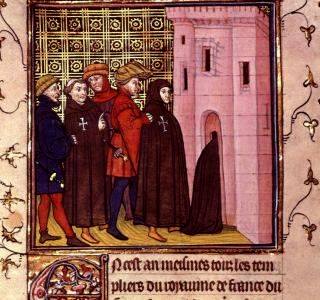 En cest an meismes touz les tem
pliers du royaume de france du